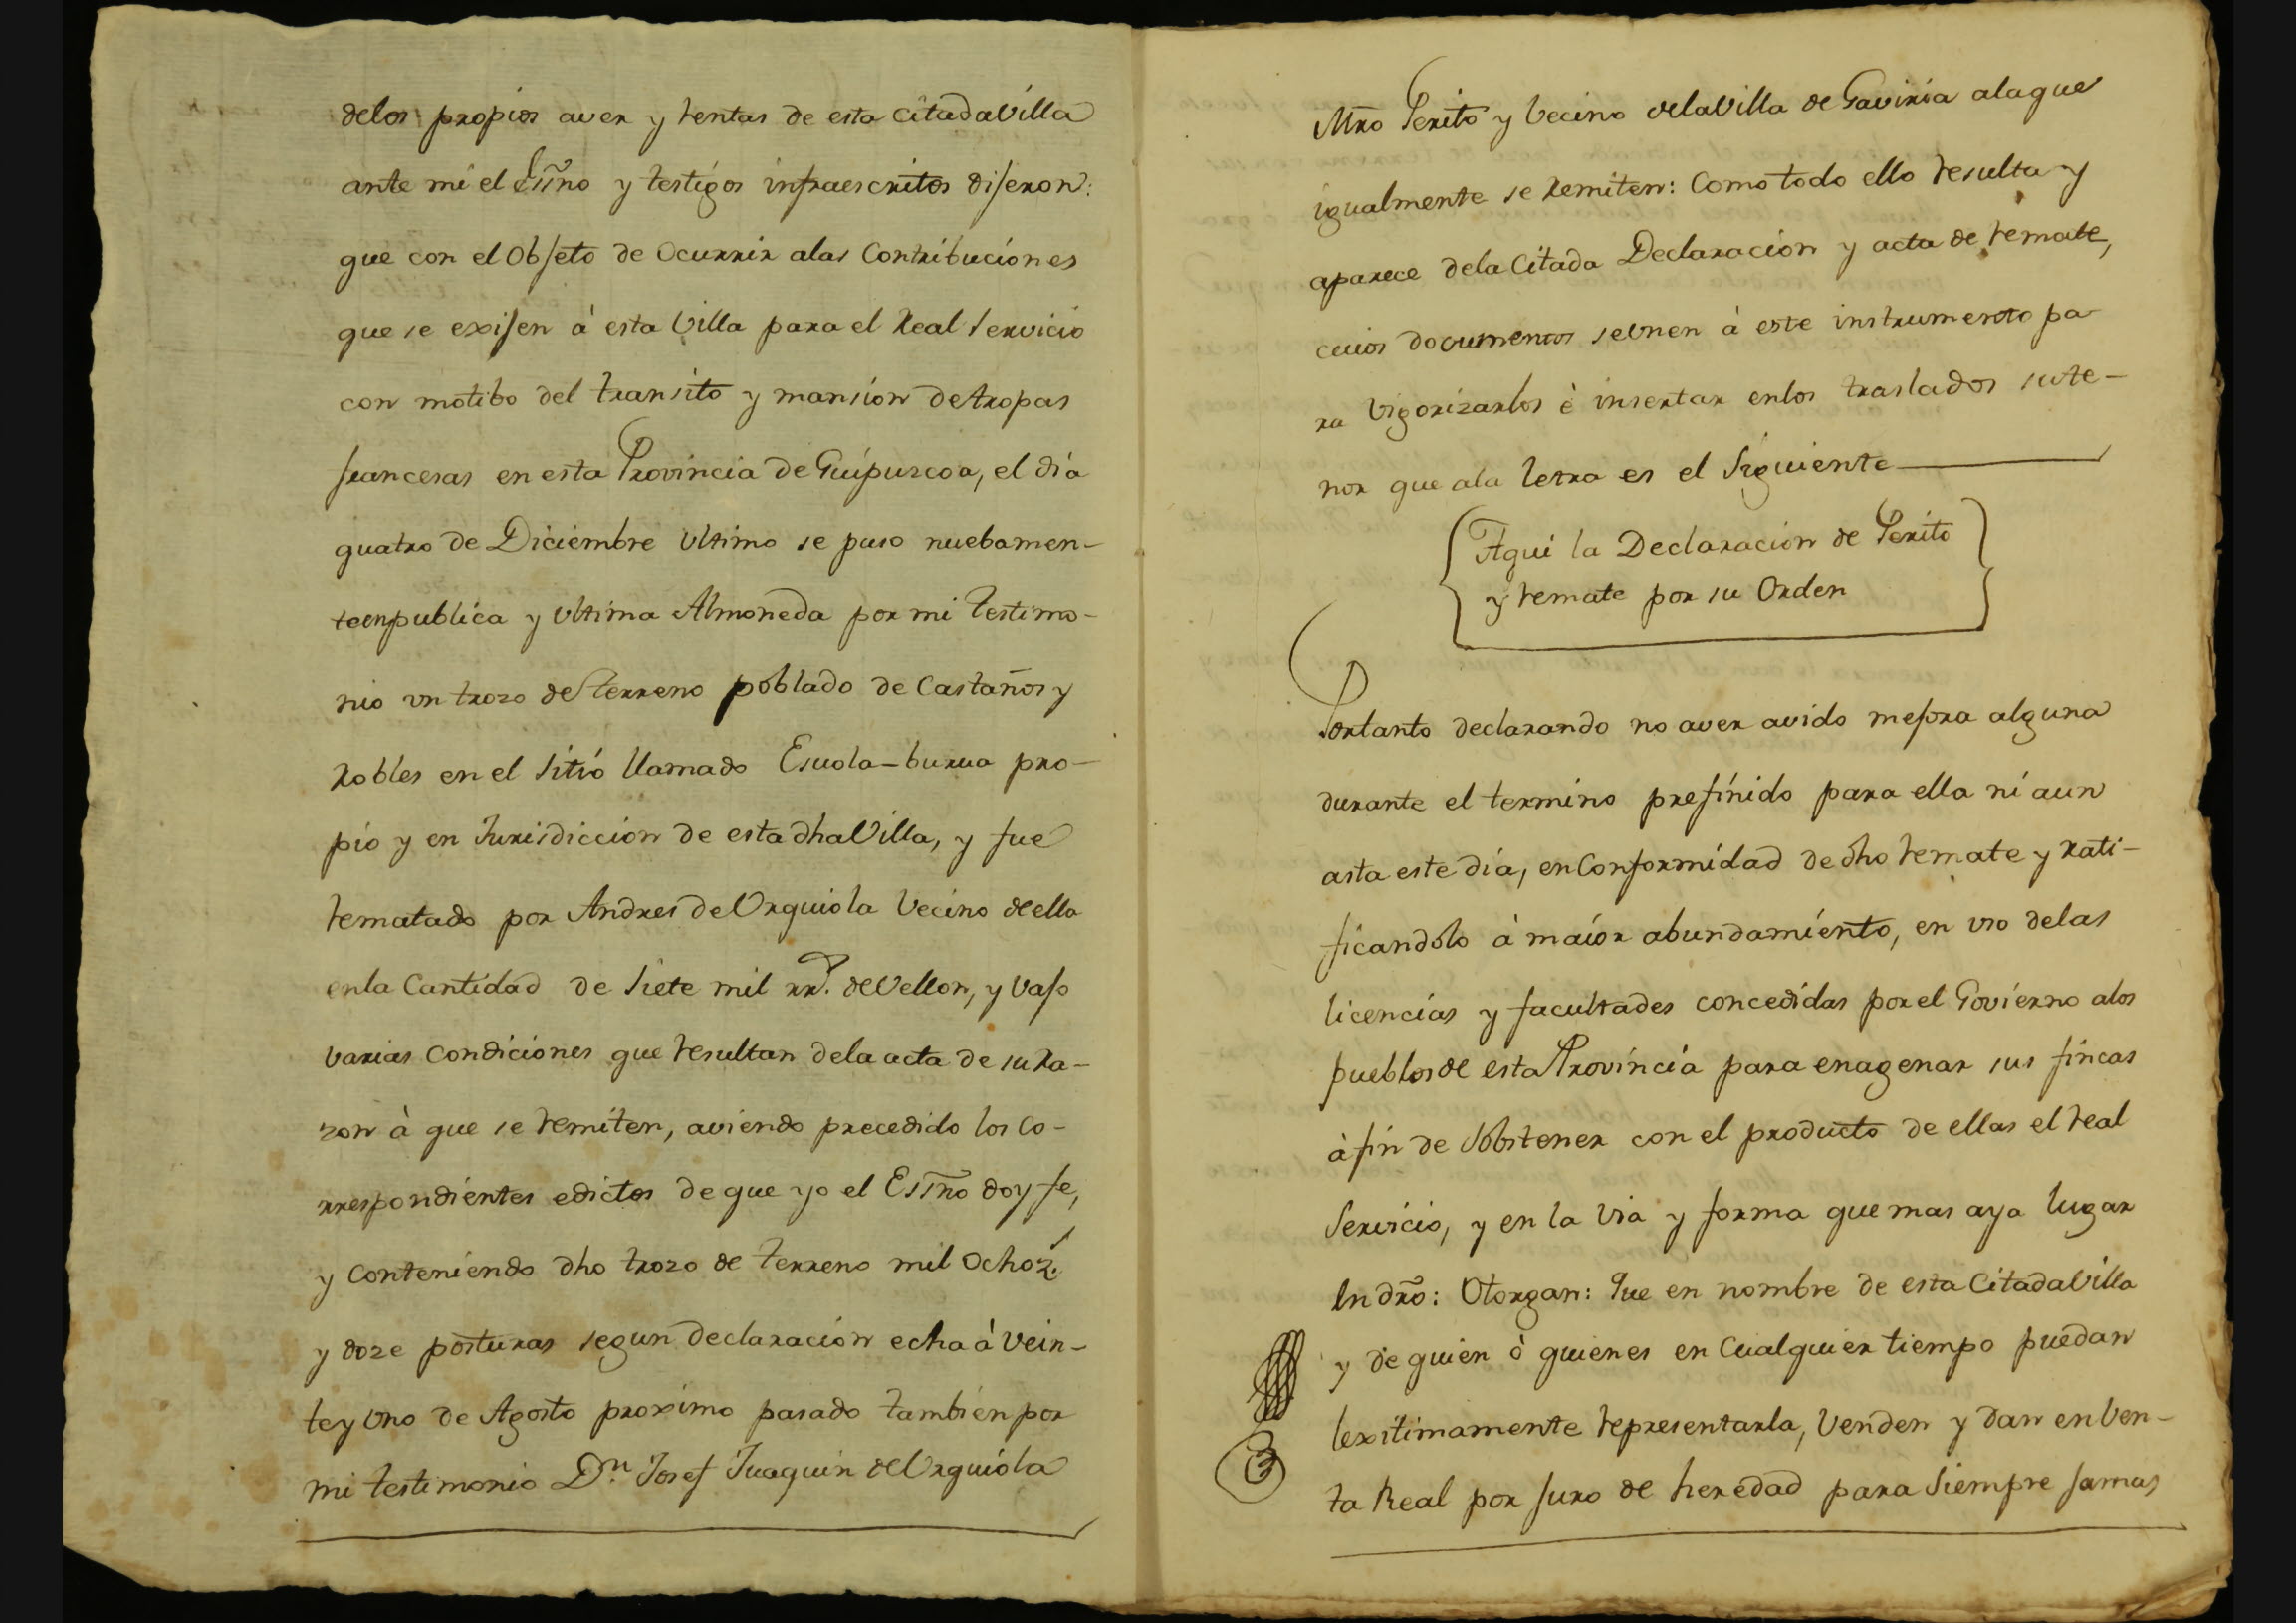 delos propios aver y rentas de esta citadaVilla
ante mi el Essño y testigos infraescritos dijeron:
que con el Objeto de Ocurrir alas Contribuciones
que se exijen à esta Villa para el Real Servicio
con motibo del transito y mansion detropas
francesas en esta Provincia de Guipuzcoa, el dia
quatro de Diciembre Ultimo se puso nuebamen-
teenpublica y Ultima Almoneda por mi testimo-
nio un trozo deSterreno poblado de Castaños y
Robles en el sitio llamado Esuola-burua pro-
pio y en Jurisdiccion de esta dhaVilla, y fue
rematado por Andres deUrquiola Vecino deella
enla Cantidad de Siete mil rrs. deVellon, y Vajo
varias Condiciones que resultan dela acta de su Ra-
zon à que se remiten, aviendo precedido los Co-
rrespondientes edictos de que yo el Essño doy fe,
y Conteniendo dho trozo de terreno mil Ochoz.
y doze posturas segun declaracion echa à Vein-
te y Uno de Agosto proximo pasado tambien por
mi testimonio Dn. Josef Juaquin deUrquiola
Mro Perito y Vecino delaVilla de Gaviria alaque
igualmente se Remiten: Como todo ello resulta y
aparece dela Citada Declaracion y acta de remate,
cuios documentos seunen à este instrumento pa
ra Vigorizarlos è insertar enlos traslados sute-
nor que ala letra es el Siguiente
Aqui la Declaracion de Perito
y remate por su Orden
Portanto declarando no aver avido mejora alguna
durante el termino prefinido para ella ni aun
asta este dia, enConformidad de dho remate y Rati-
ficandolo à maior abundamiento, en uso delas
licencias y facultades concedidas por el Govierno alos
pueblos de esta Provincia para enagenar sus fincas
à fin de Sobstener con el producto de ellas el real
Servicio, y en la Via y forma que mas aya lugar
En dro: Otorgan: Que en nombre de esta CitadaVilla
y de quien ò quienes en Cualquier tiempo puedan
lexitimamente representarla, Venden y dan en Ven-
ta Real por juro de heredad para Siempre jamas